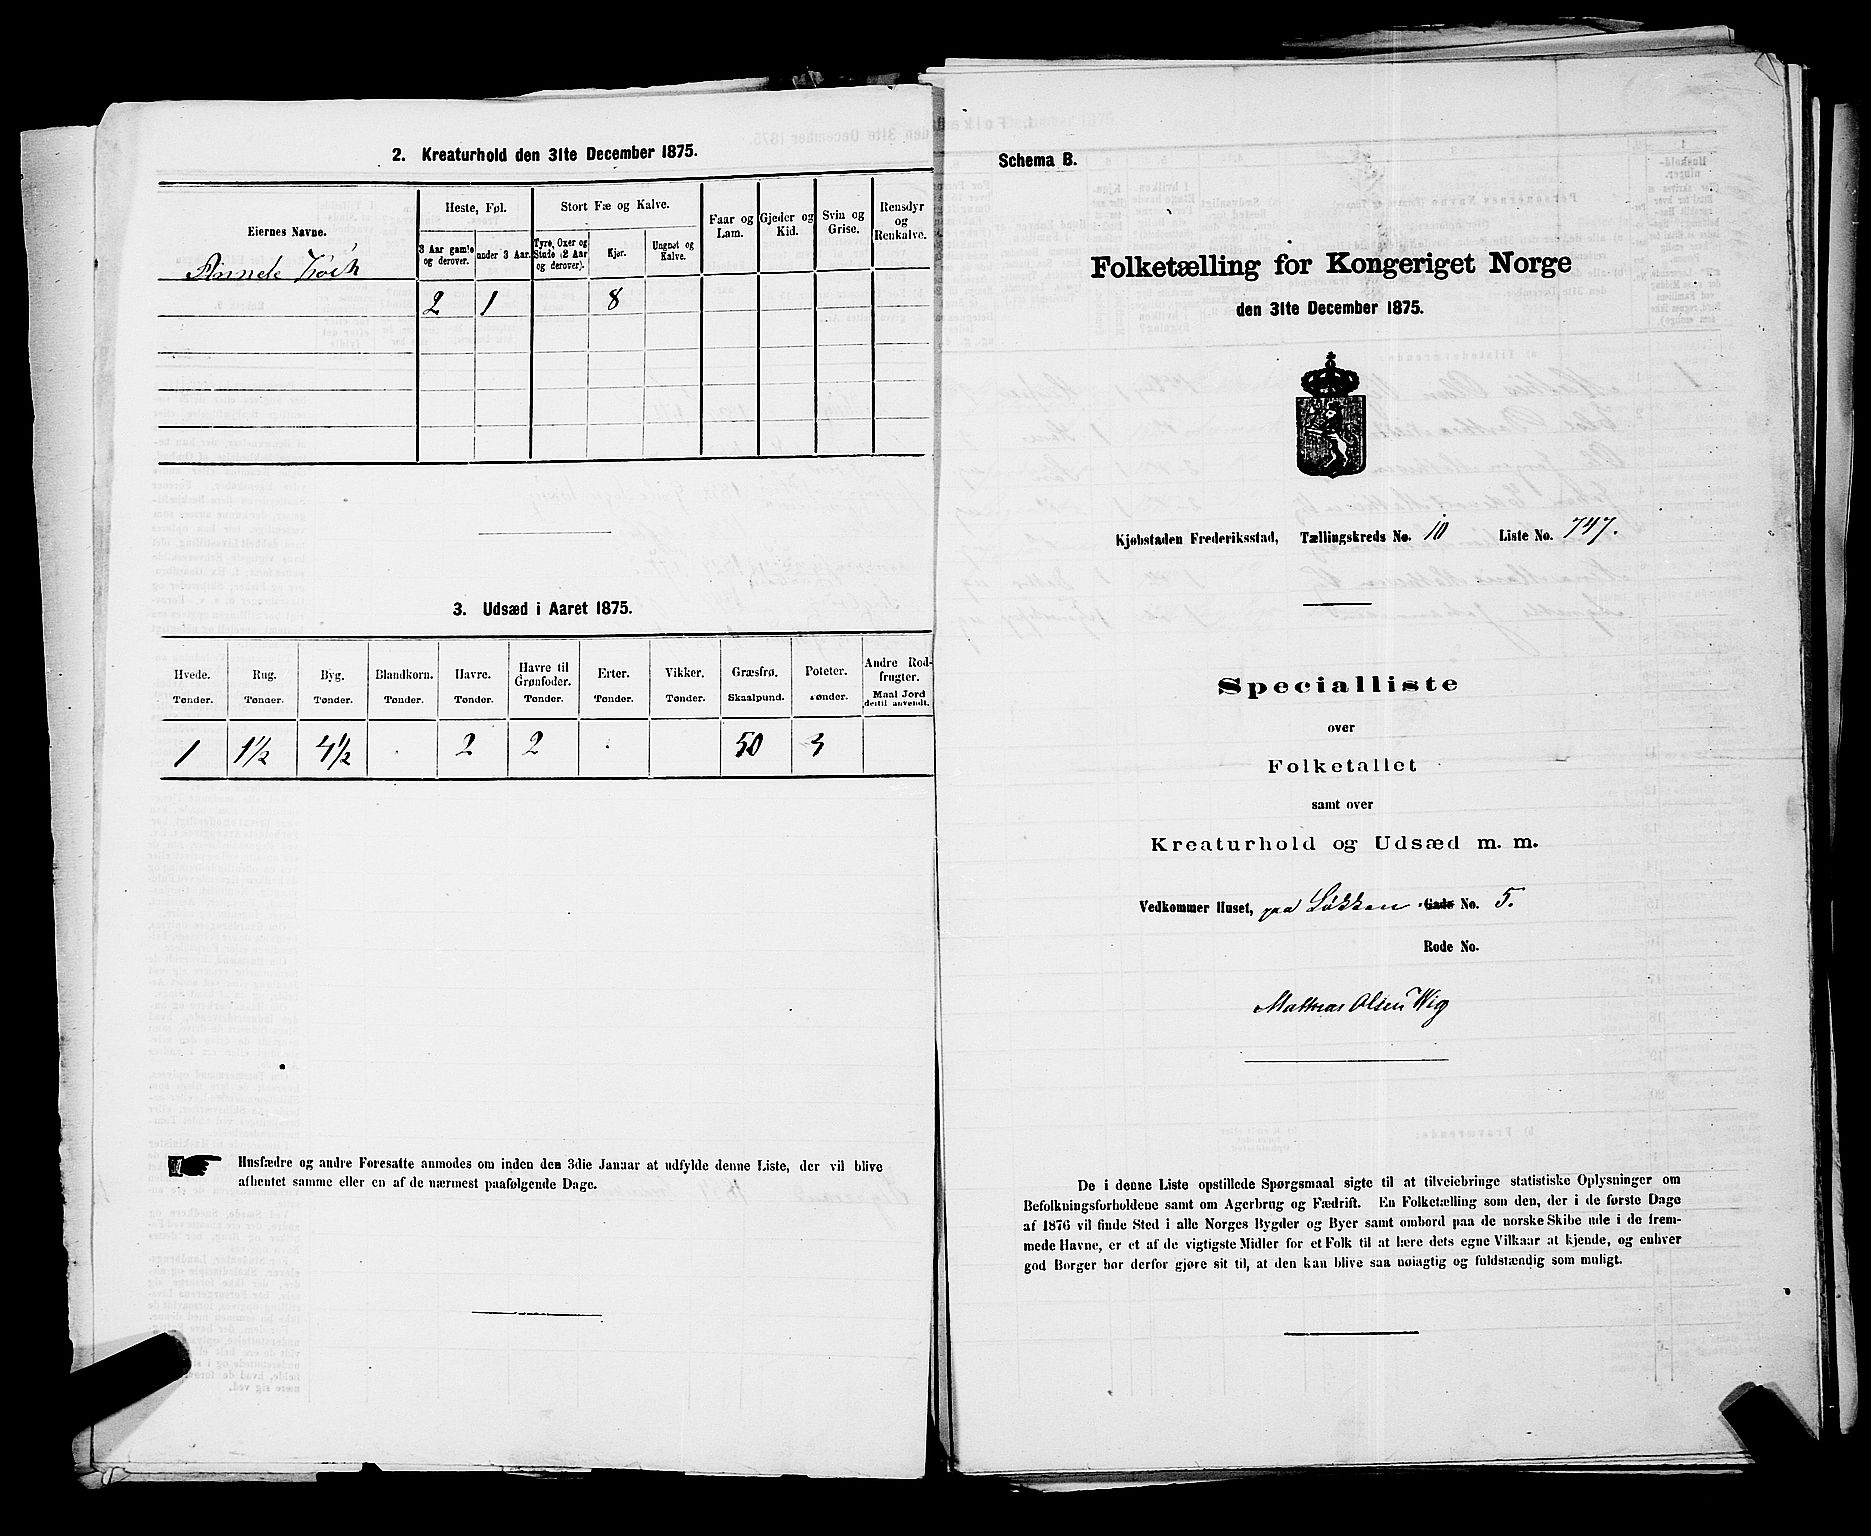 2. Kreaturhold den 31te December 1875.
Eiernes Navne.
Heste, Føl.
Stort Fæ og Kalve.
Faar og Lam.
Gjeder og Kid.
Svin og Grise.
Rensdyr og Renkalve.
3 Aar gamle og derover.
under 3 Aar.
Tyre, Oxer og Stude (2 Aar og derover).
Kjør.
Ungnøt og Kalve.
2 1 8
3. Udsæd i Aaret 1875.
Hvede. Rug. Byg. Blandkorn. Havre. Havre til Grønfoder. Erter. Vikker. Græsfrø. Poteter. Andre Rodfrugter.
Tønder. Tønder. Tønder. Tønder. Tønder. Tønder. Tønder. Tønder. Skaalpund. Tønder. Maal Jord dertil anvendt.
1 1½ 4½ 2 2 50 3
Husfædre og andre Foresatte anmodes om inden den 3die Januar at udfylde denne Liste, der vil blive
afhentet samme eller en af de nærmest paafølgende Dage.
Schema B.
Folketælling for Kongeriget Norge
den 31te December 1875.
Kjøbstaden Frederiksstad, Tællingskreds No. 10 Liste No. 747.
Specialliste
over
Folketallet
samt over
Kreaturhold og Udsæd m. m.
Vedkommer Huset, paa Løkken Gade No. 5.
Rode No.
Mathias Olsen Wig
De i denne Liste opstillede Spørgsmaal sigte til at tilveiebringe statistiske Oplysninger om
Befolkningsforholdene samt om Agerbrug og Fædrift. En Folketælling som den, der i de første Dage
af 1876 vil finde Sted i alle Norges Bygder og Byer samt ombord paa de norske Skibe ude i de frem-
mede Havne, er et af de vigtigste Midler for et Folk til at lære dets egne Vilkaar at kjende, og enhver
god Borger bør derfor gjøre sit til, at den kan blive saa nøiagtig og fuldstændig som muligt.